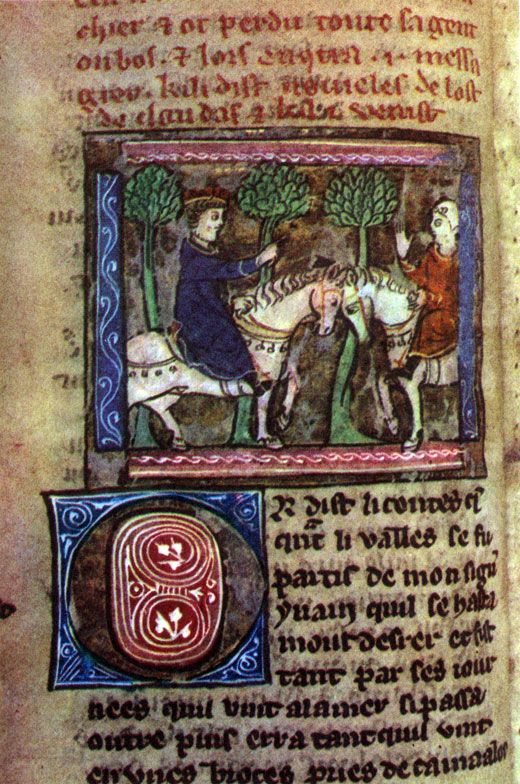 chier & or perdu toute sa gent
ou bos. & lors encōtra .i. messa
gier. ki li dist nouueles de lost
de claudas & kest venus
R dist li contes q̄
quāt li valles se fu
partis de monsign̄
yuain quil se hasta
moutderrer et fist
tant par ses iour
nees quil vint a la mer si passa
outre puis erra tant quil vint
en vnes broces pries de camaalot